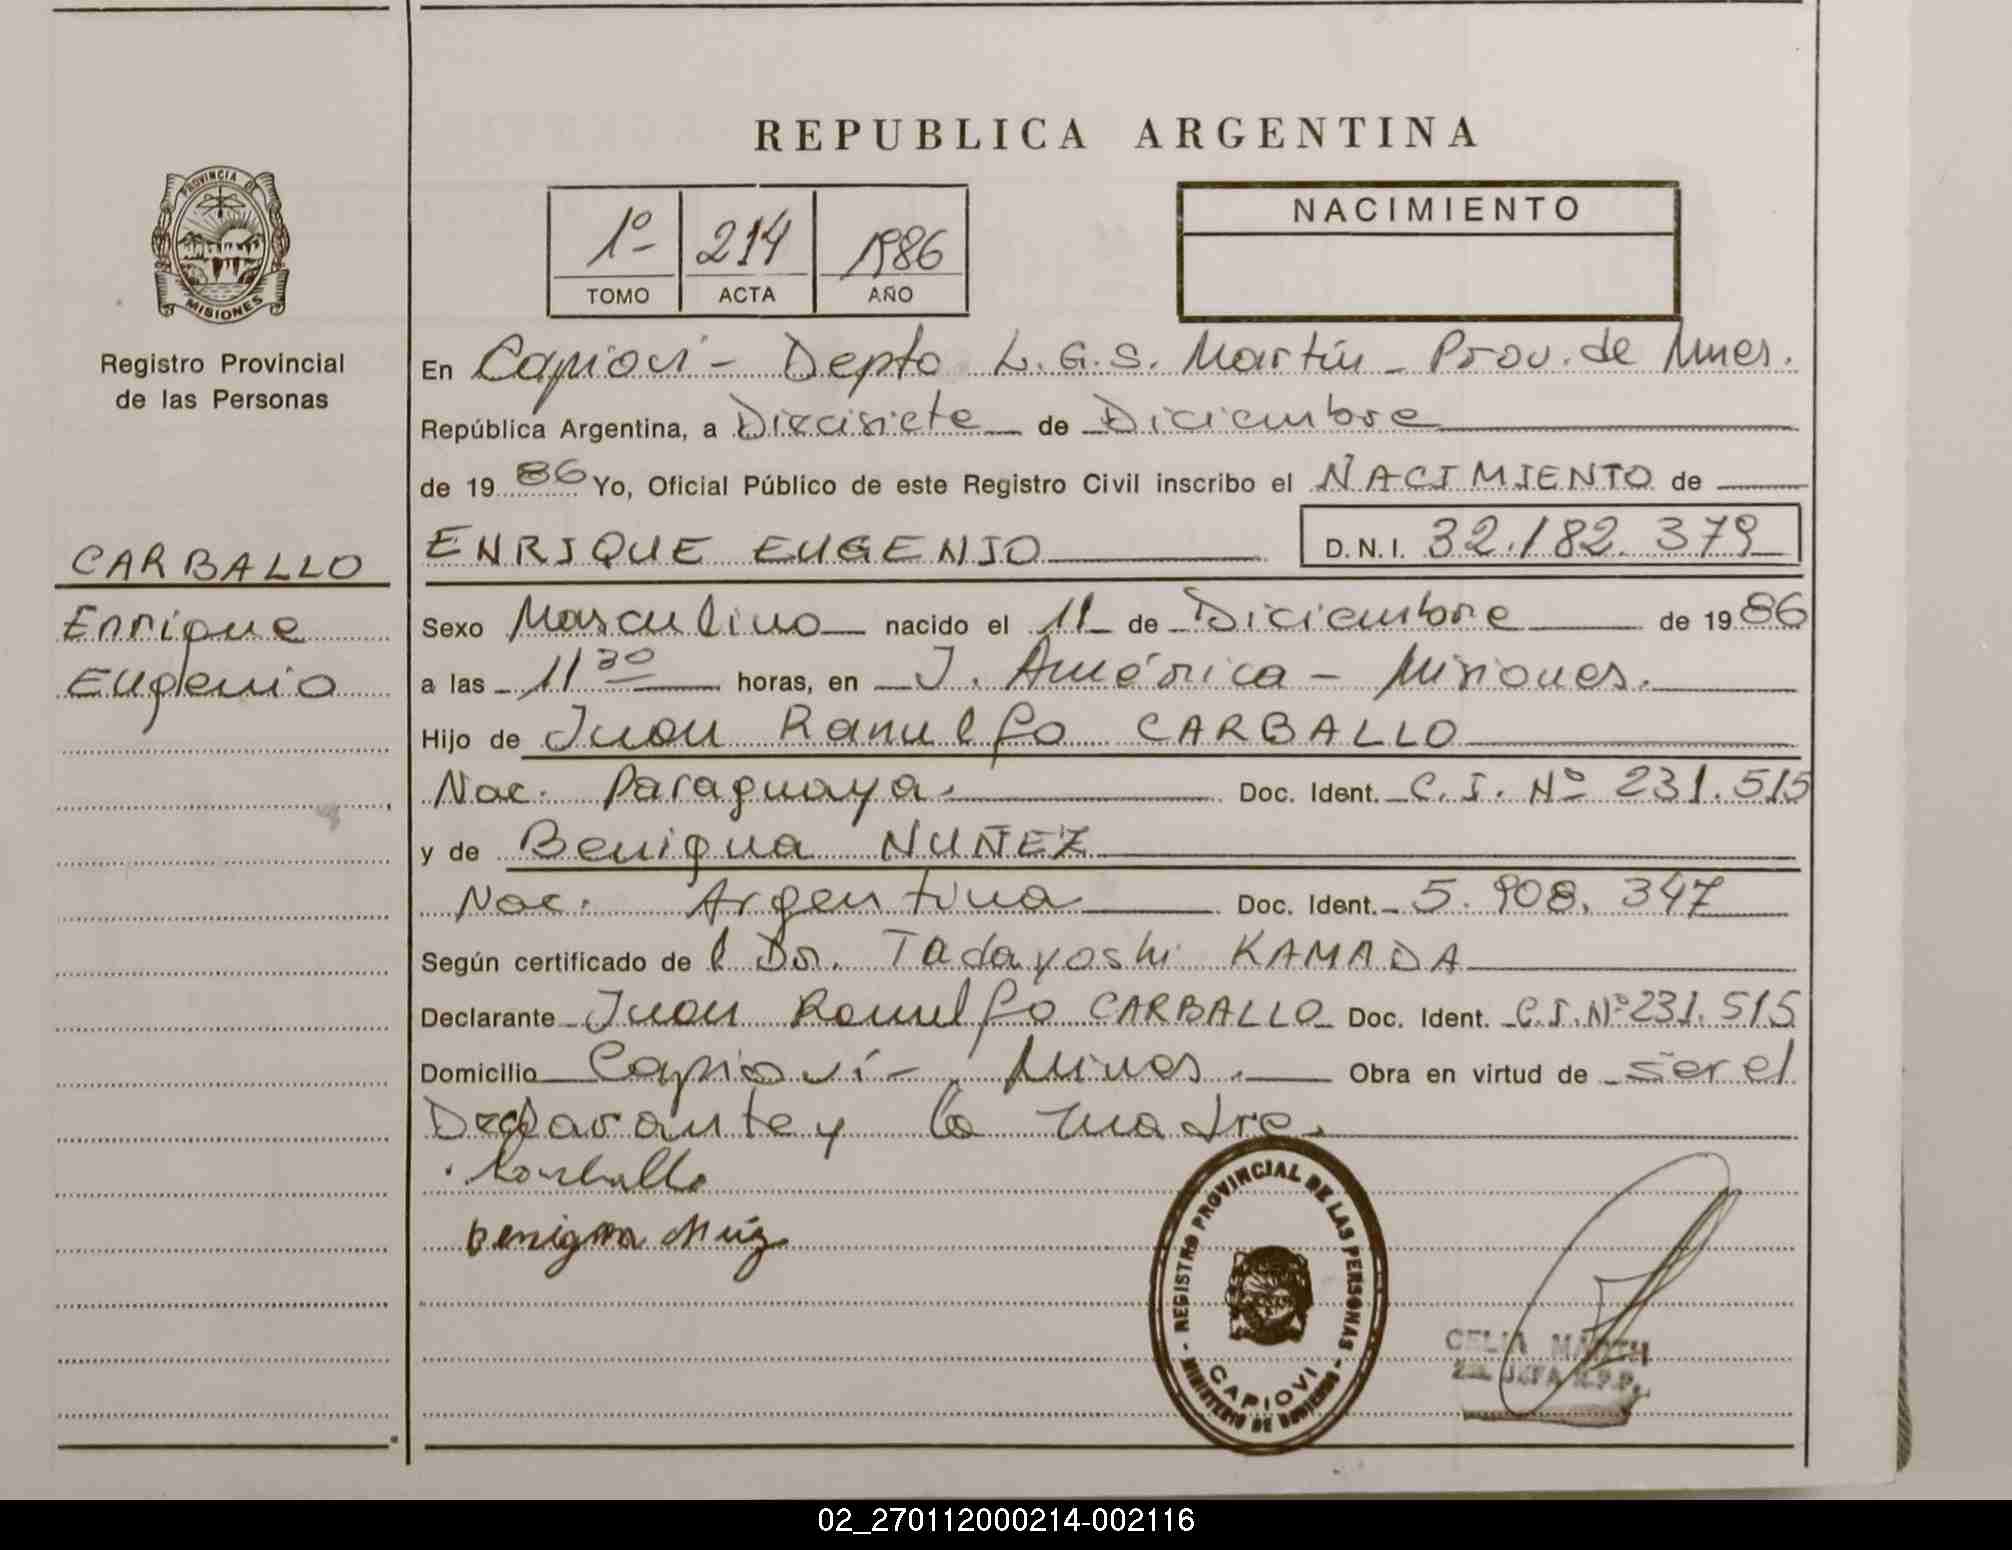 REPUBLICA ARGENTINA
PROVINCIA DE
MISIONES
Registro Provincial
de las Personas
1º 214 1986
TOMO ACTA AÑO
NACIMIENTO
En Capioví - Depto L.G.S. Martín - Prov. de Mnes.
República Argentina, a Diecisiete de Diciembre
de 1986 Yo, Oficial Público de este Registro Civil inscribo el NACIMIENTO de
CARBALLO
Enrique
Eugenio
ENRIQUE EUGENIO D.N.I. 32.182.379
Sexo Masculino nacido el 11 de Diciembre de 1986
a las 11 30 horas, en J. América - Misiones.
Hijo de Juan Ranulfo CARBALLO
Nac. Paraguaya. Doc. Ident. C.I. Nº 231.515
y de Benigna NUÑEZ
Nac. Argentina Doc. Ident. 5.908.347
Según certificado de l Dr. Tadayoshi KAMADA
Declarante Juan Ranulfo CARBALLO Doc. Ident. C.I.Nº 231.515
Domicilio Capioví - Obra en virtud de ser el
Declarante y la madre.
Carballo
Benigna
REGISTRO PROVINCIAL DE LAS PERSONAS
- MINISTERIO DE GOBIERNO -
CAPIOVI
CELIA
JEFA R.P.P.
02_270112000214-002116